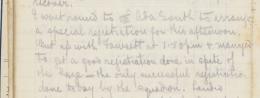 recover.
I went round to Coa South to arrange
a special registration for this afternoon.
But up with Fawcett at 1.30pm & managed
to get a good registration done in spite of
the haze – the only successful registration
done today by the Squadron,